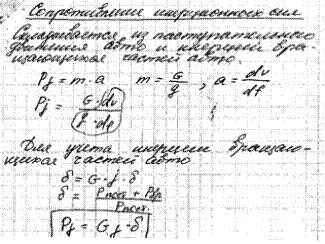 Сопротивление инерционных сил
Складывается из поступательного
движения авто и инерции вра-
щающихся частей авто.
Pj = m · a   m = G/g , a = dv/dt
Pj = G · dv / g · dt
Для учета инерции вращаю-
щихся частей авто
δ = G · j · δ
δ = Pпост + Pвр / Pпост.
Pj = G j · δ